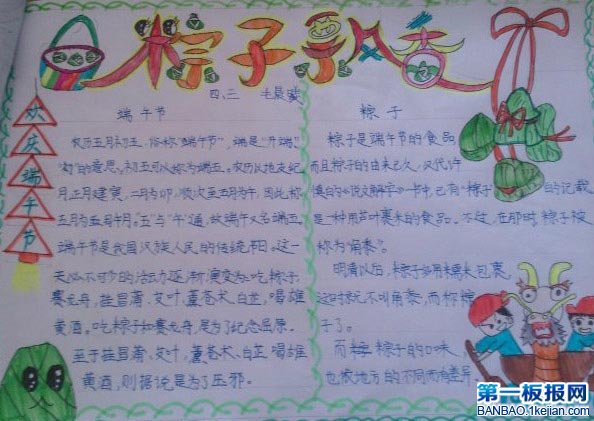 粽子飘香
四、三 毛晨
欢庆端午节
端午节
农历五月初五,俗称"端午节",端是"开端"
"初"的意思。初五可以称为端五。农历以地支纪
月正月建寅,二月为卯,顺次至五月为午,因此称
五月为午月。"五"与"午"通,故端午又名端五。
端午节是我国汉族人民的传统节日。这一
天必不可少的活动逐渐演变为:吃粽子,
赛龙舟,挂菖蒲、艾叶,薰苍术、白芷,喝雄
黄酒。吃粽子和赛龙舟,是为了纪念屈原。
至于挂菖蒲、艾叶、薰苍术、白芷、喝雄
黄酒,则据说是为了压邪。
粽子
粽子是端午节的食品
而且粽子的由来已久,汉代许
慎的《说文解字》一书中,已有"粽子"的记载
是一种用芦叶裹米的食品。不过,在那时,粽子被
称为"角黍"。
明清以后,粽子多用糯米包裹,
这时就不叫角黍,而称粽
子了。
而 粽子的口味,
也依地方的不同而有差异。
第一板报网
BANBAO.1kejian.com